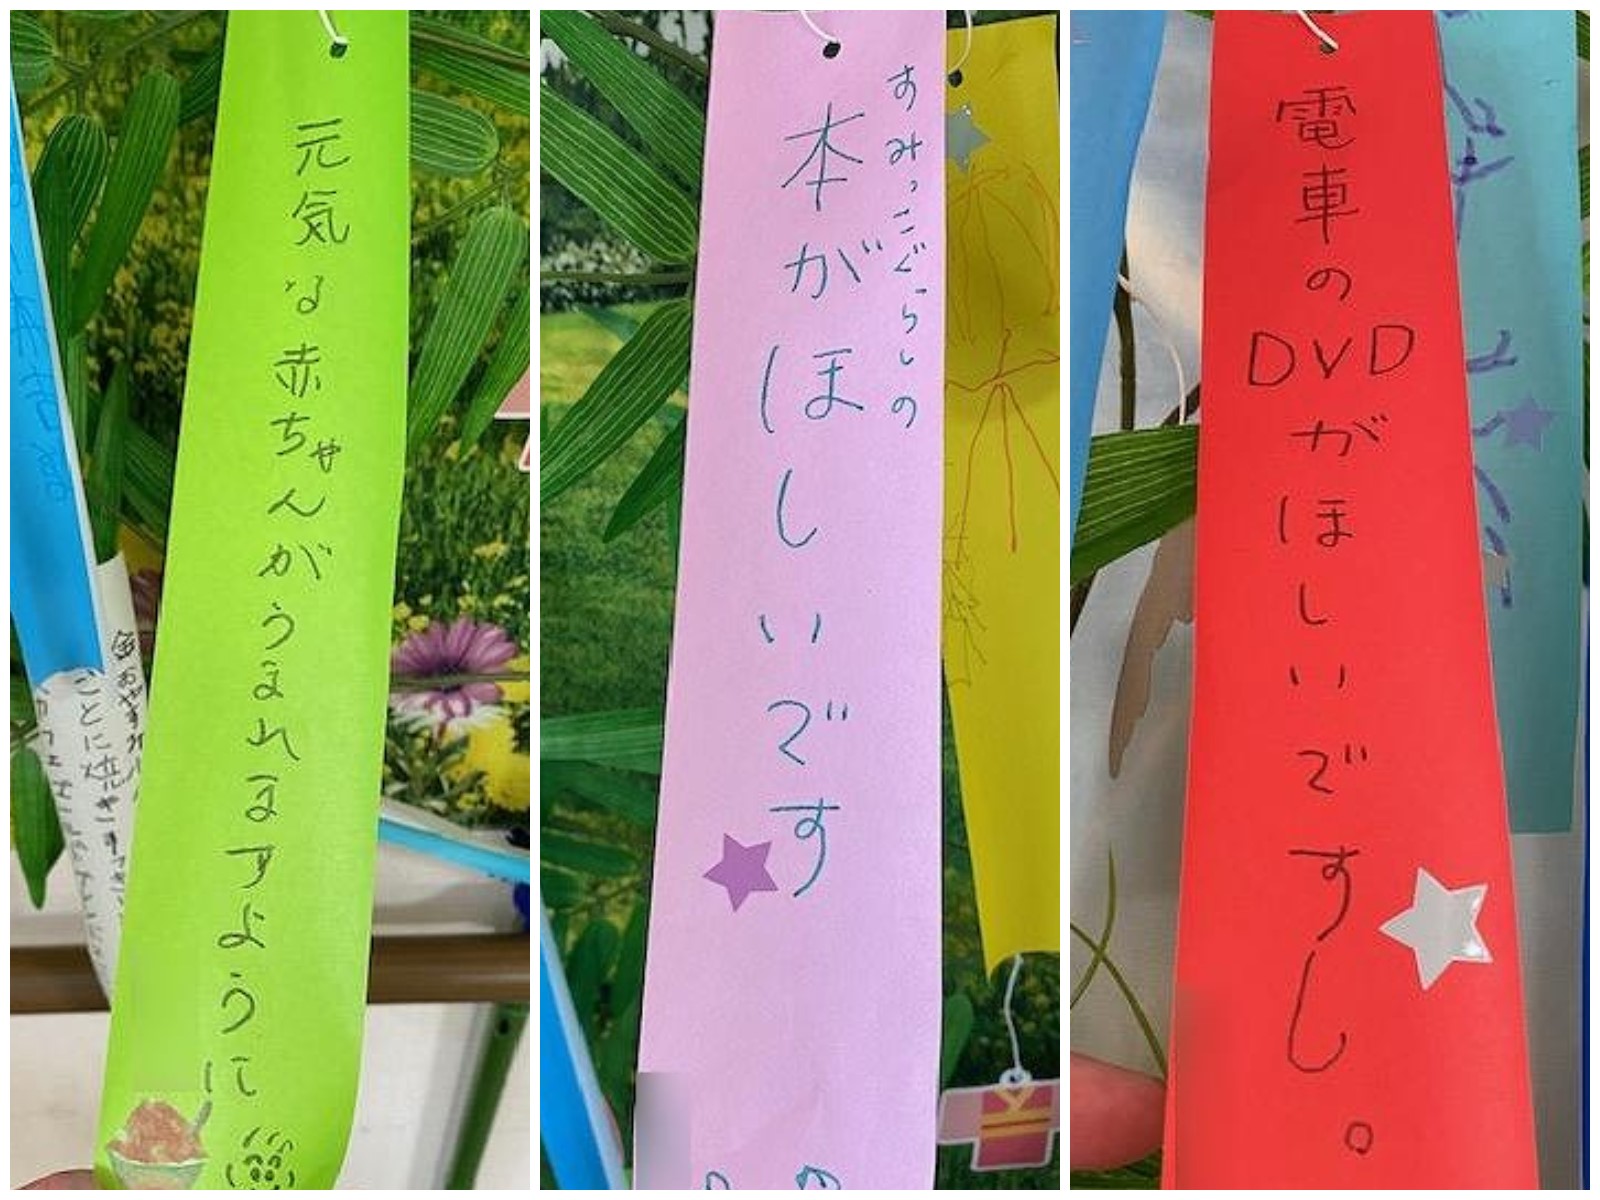 元気な赤ちゃんがうまれますように
ごとに焼き
すみっこぐらしの
本がほしいです
電車の
DVD
がほしいですし。